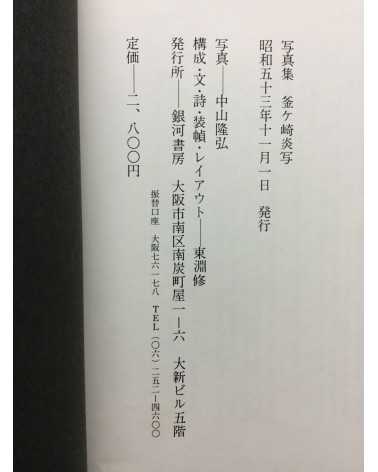 写真集　釜ケ崎炎写
昭和五十三年十一月一日　発行
写真――中山隆弘
構成・文・詩・装幀・レイアウト――東淵修
発行所――銀河書房　大阪市南区南炭町屋一―六　大新ビル五階
振替口座　大阪七六一七八　TEL（〇六）二五二―四六〇〇
定価――二、八〇〇円